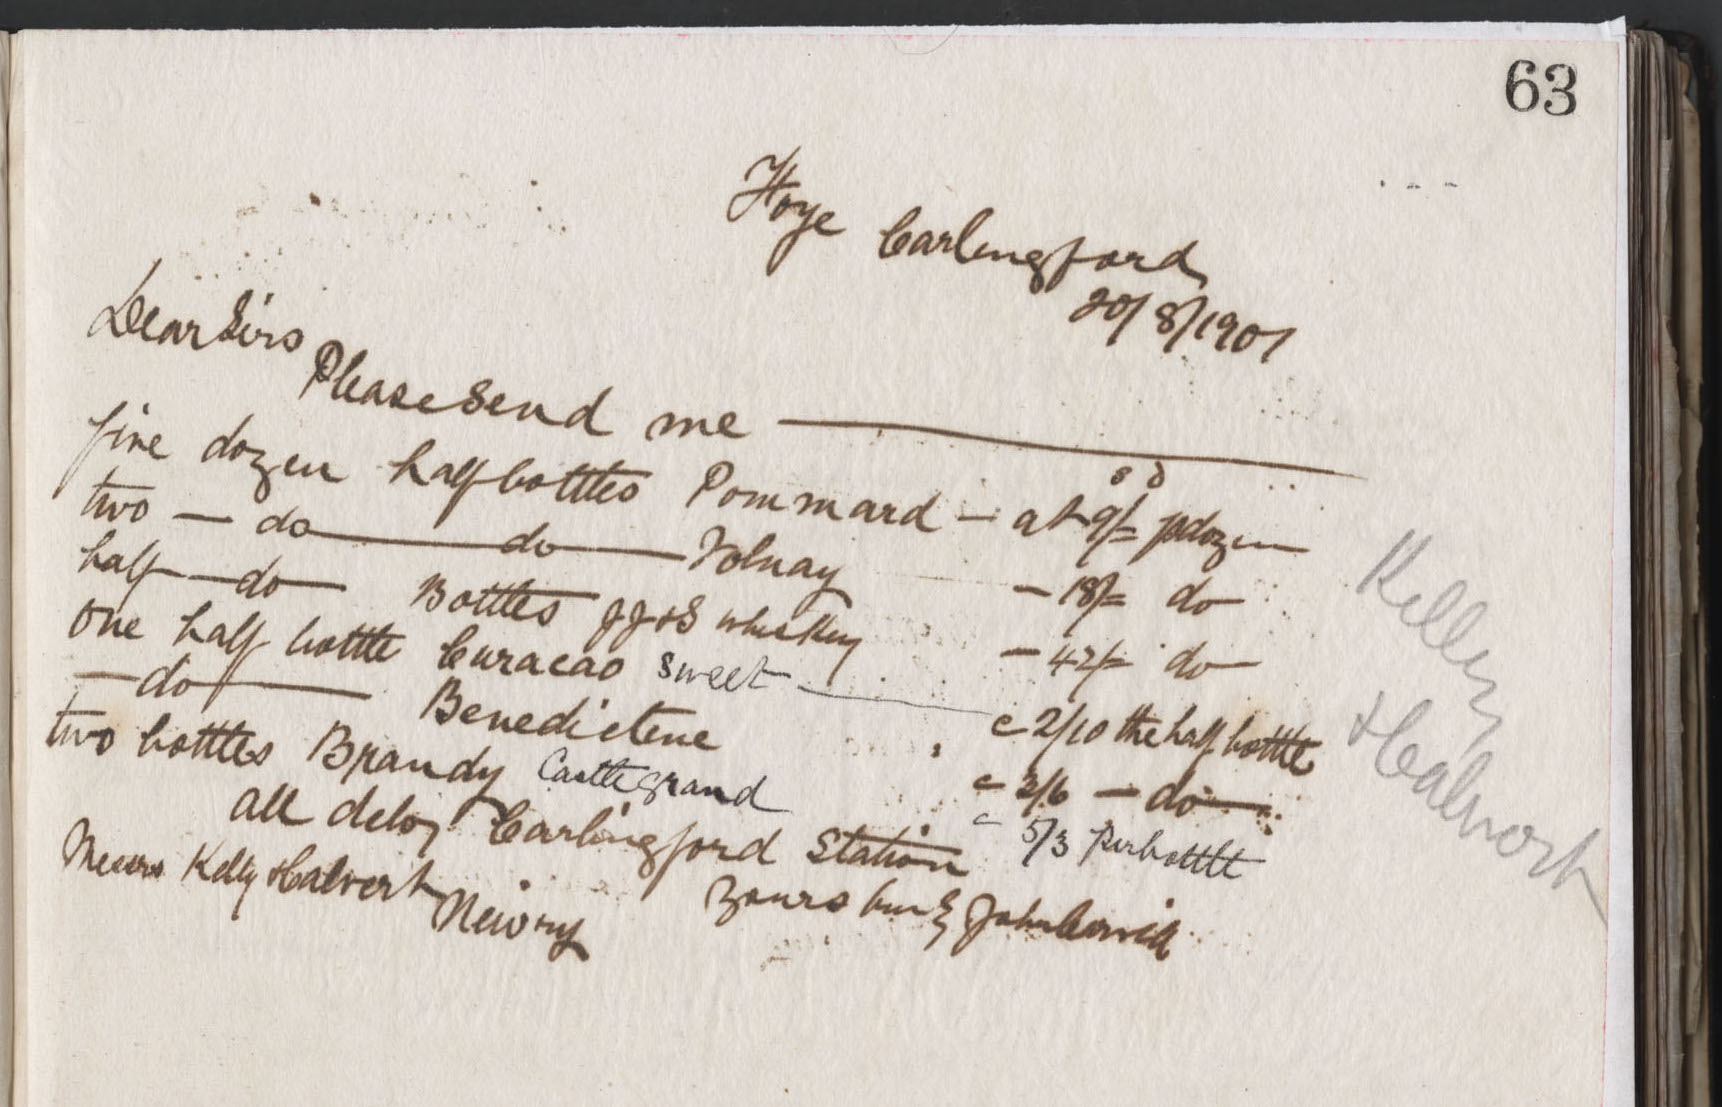 63
Foye Carlingford
20/8/1901
Dear Sirs
Please send me
s d
five dozen half bottles Pommard — at 9/= p dozen
two — do — do — Volnay — 18/= do
half — do — Bottles JJ&S whiskey — 42/= do
one half bottle Curacao sweet — c 2/10 the half bottle
— do — Benedictene c 3/6 — do —
two bottles Brandy Castlegrand c 5/3 per bottle
all deloy Carlingford Station
Yours truly John
Messrs Kelly & Calvert
Newry
Kelly
& Calwort